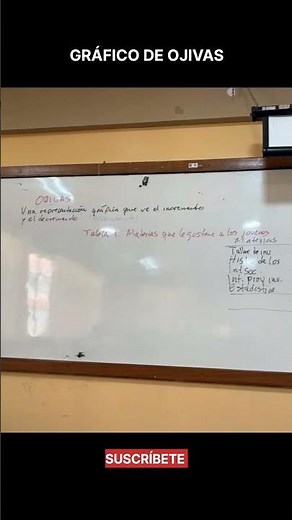 GRÁFICO DE OJIVAS
OJIVAS
Una representación gráfica que ve el incremento
y el decremento
Tabla 1. Materias que le gustan a los jovenes
Materias
Taller de inv
Hist de los
Int Soc
Int. proy inv.
Estadistica
SUSCRÍBETE